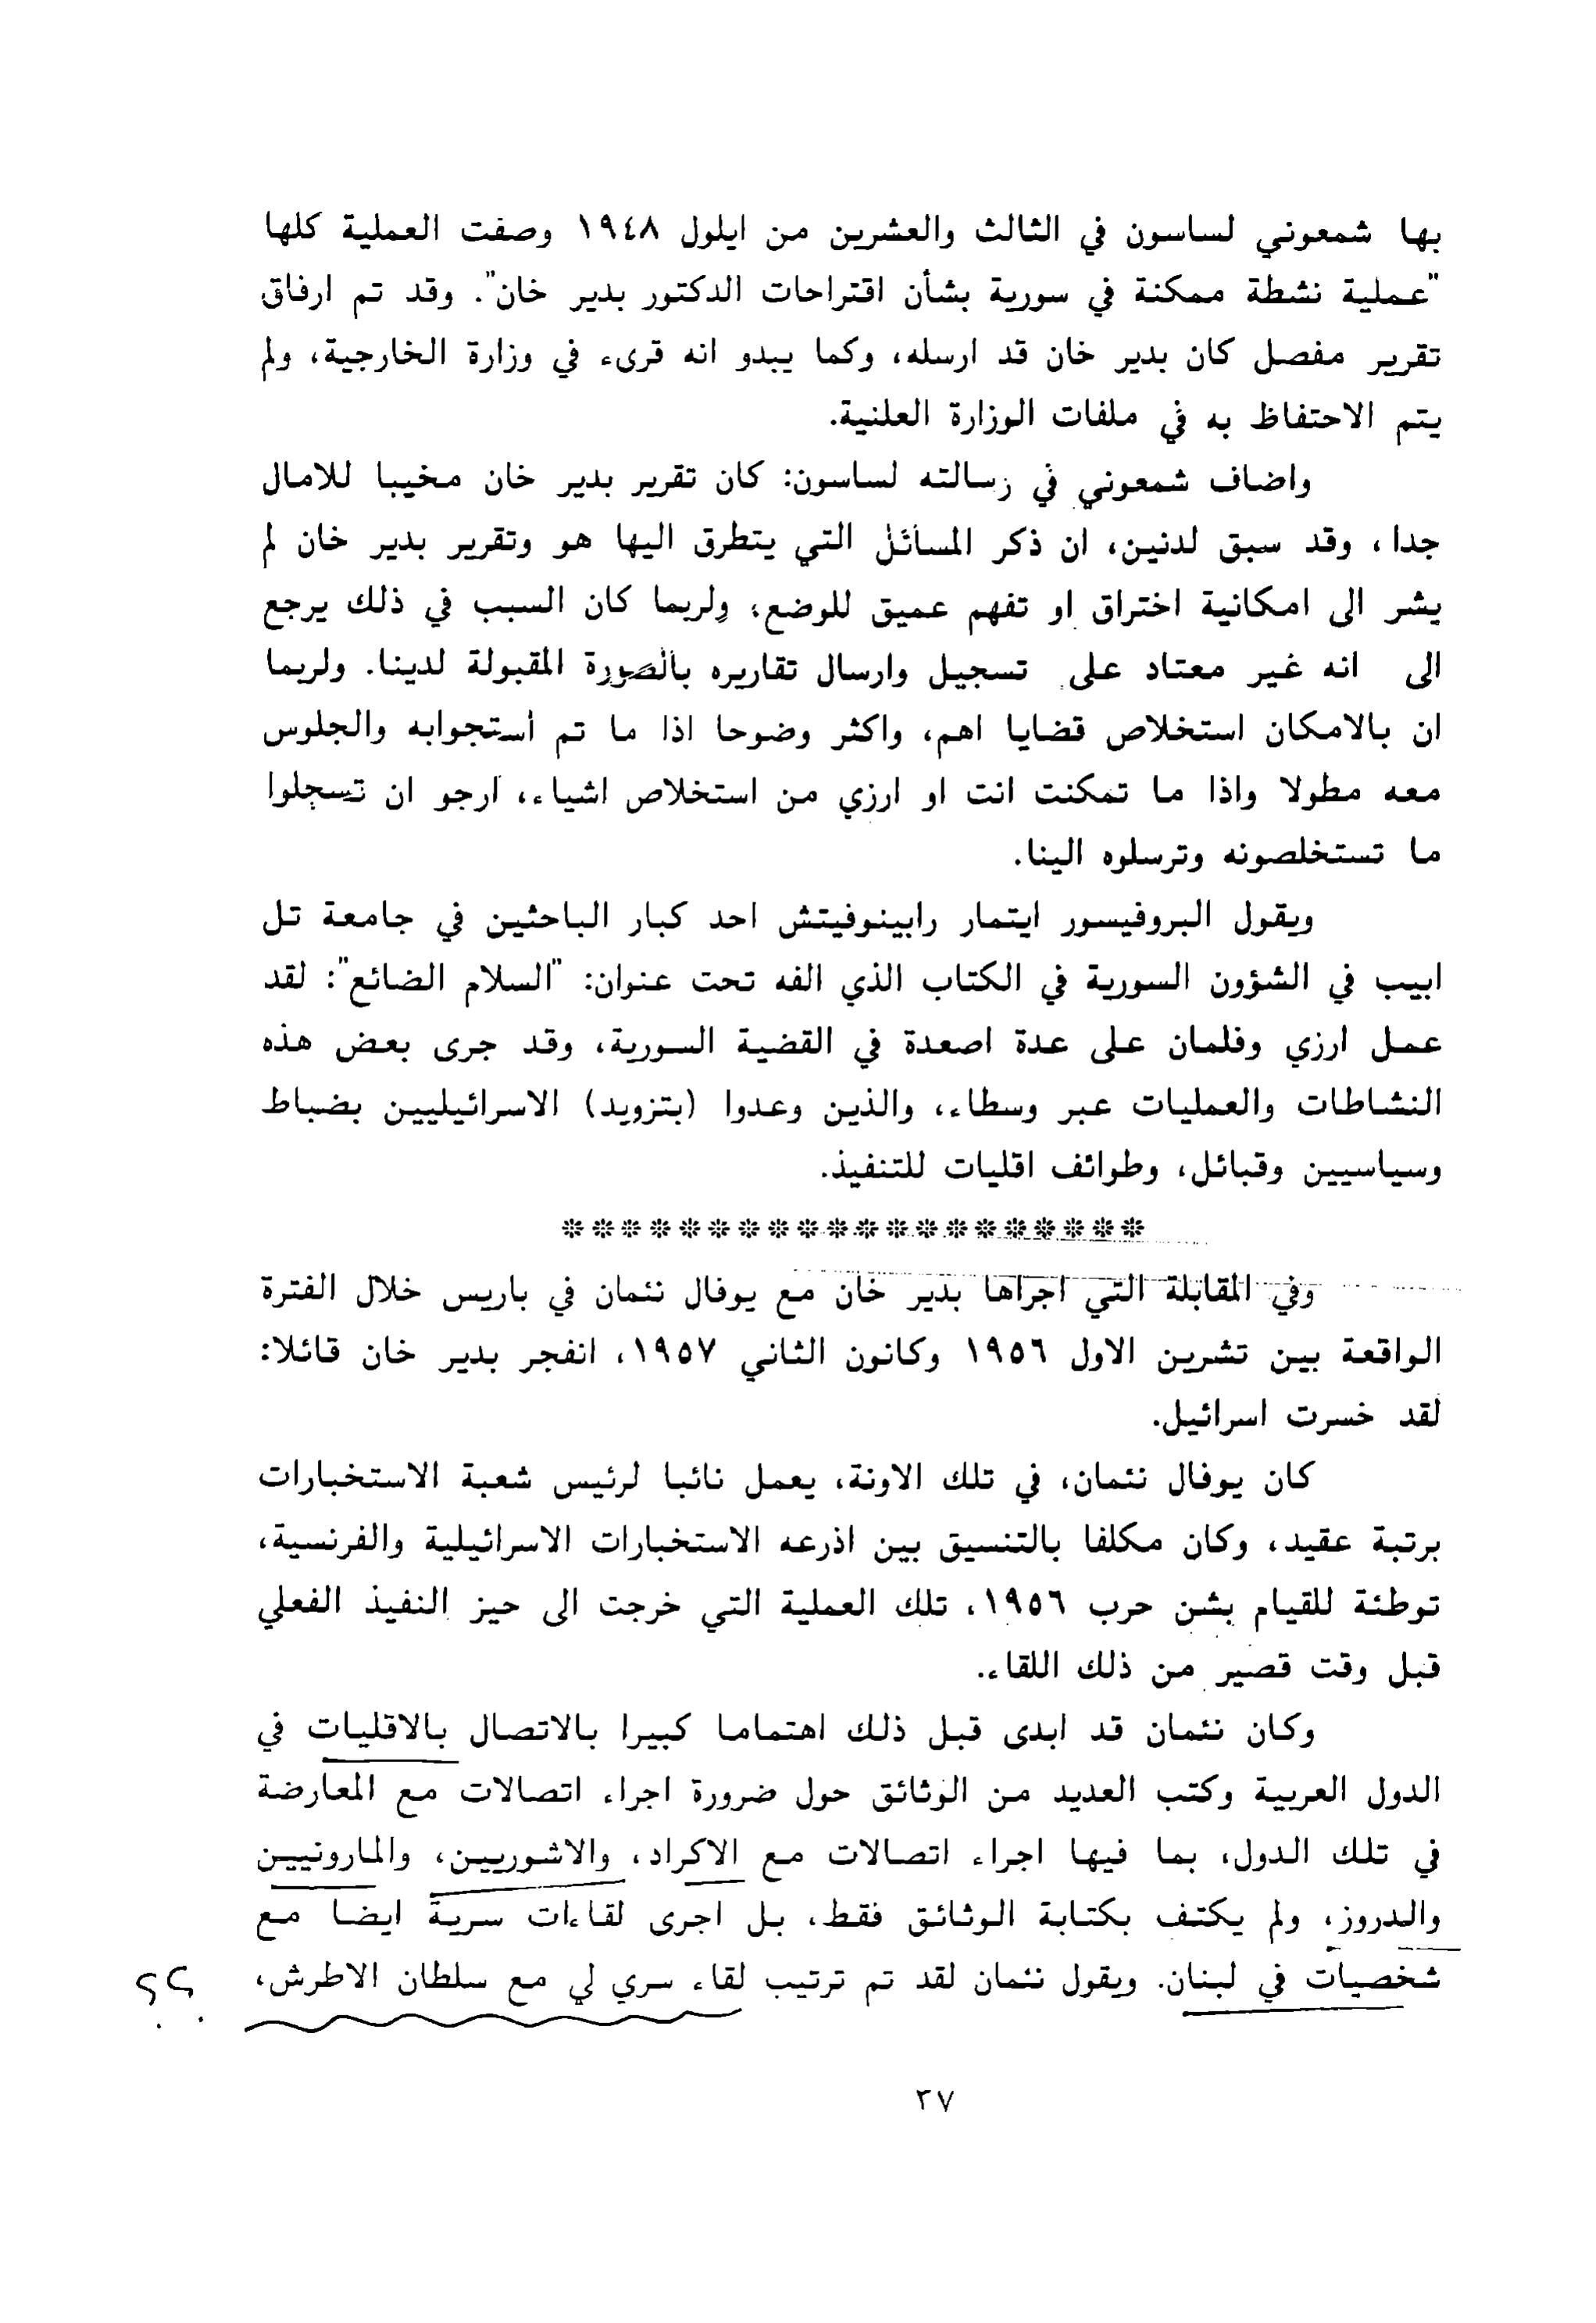 بها شمعوني لساسون في الثالث والعشرين من ايلول ١٩٤٨ وصفت العملية كلها
"عملية نشطة ممكنة في سورية بشأن اقتراحات الدكتور بدير خان". وقد تم ارفاق
تقرير مفصل كان بدير خان قد ارسله، وكما يبدو انه قرىء في وزارة الخارجية، ولم
يتم الاحتفاظ به في ملفات الوزارة العلنية.
واضاف شمعوني في رسالته لساسون: كان تقرير بدير خان مخيبا للامال
جدا، وقد سبق لدنين، ان ذكر المسائل التي يتطرق اليها هو وتقرير بدير خان لم
يشر الى امكانية اختراق او تفهم عميق للوضع، ولربما كان السبب في ذلك يرجع
الى انه غير معتاد على تسجيل وارسال تقاريره بالصورة المقبولة لدينا. ولربما
ان بالامكان استخلاص قضايا اهم، واكثر وضوحا اذا ما تم أستجوابه والجلوس
معه مطولا واذا ما تمكنت انت او ارزي من استخلاص اشياء، ارجو ان تسجلوا
ما تستخلصونه وترسلوه الينا.
ويقول البروفيسور ايتمار رابينوفيتش احد كبار الباحثين في جامعة تل
ابيب في الشؤون السورية في الكتاب الذي الفه تحت عنوان: "السلام الضائع": لقد
عمل ارزي وفلمان على عدة اصعدة في القضية السورية، وقد جرى بعض هذه
النشاطات والعمليات عبر وسطاء، والذين وعدوا (بتزويد) الاسرائيليين بضباط
وسياسيين وقبائل، وطوائف اقليات للتنفيذ.
********************
وفي المقابلة التي اجراها بدير خان مع يوفال نئمان في باريس خلال الفترة
الواقعة بين تشرين الاول ١٩٥٦ وكانون الثاني ١٩٥٧، انفجر بدير خان قائلا:
لقد خسرت اسرائيل.
كان يوفال نئمان، في تلك الاونة، يعمل نائبا لرئيس شعبة الاستخبارات
برتبة عقيد، وكان مكلفا بالتنسيق بين اذرعه الاستخبارات الاسرائيلية والفرنسية،
توطئة للقيام بشن حرب ١٩٥٦، تلك العملية التي خرجت الى حيز النفيذ الفعلي
قبل وقت قصير من ذلك اللقاء.
وكان نئمان قد ابدى قبل ذلك اهتماما كبيرا بالاتصال بالاقليات في
الدول العربية وكتب العديد من الوثائق حول ضرورة اجراء اتصالات مع المعارضة
في تلك الدول، بما فيها اجراء اتصالات مع الاكراد، والاشوريين، والمارونيين
والدروز، ولم يكتف بكتابة الوثائق فقط، بل اجرى لقاءات سرية ايضا مع
شخصيات في لبنان. ويقول نئمان لقد تم ترتيب لقاء سري لي مع سلطان الاطرش، ؟؟
٢٧